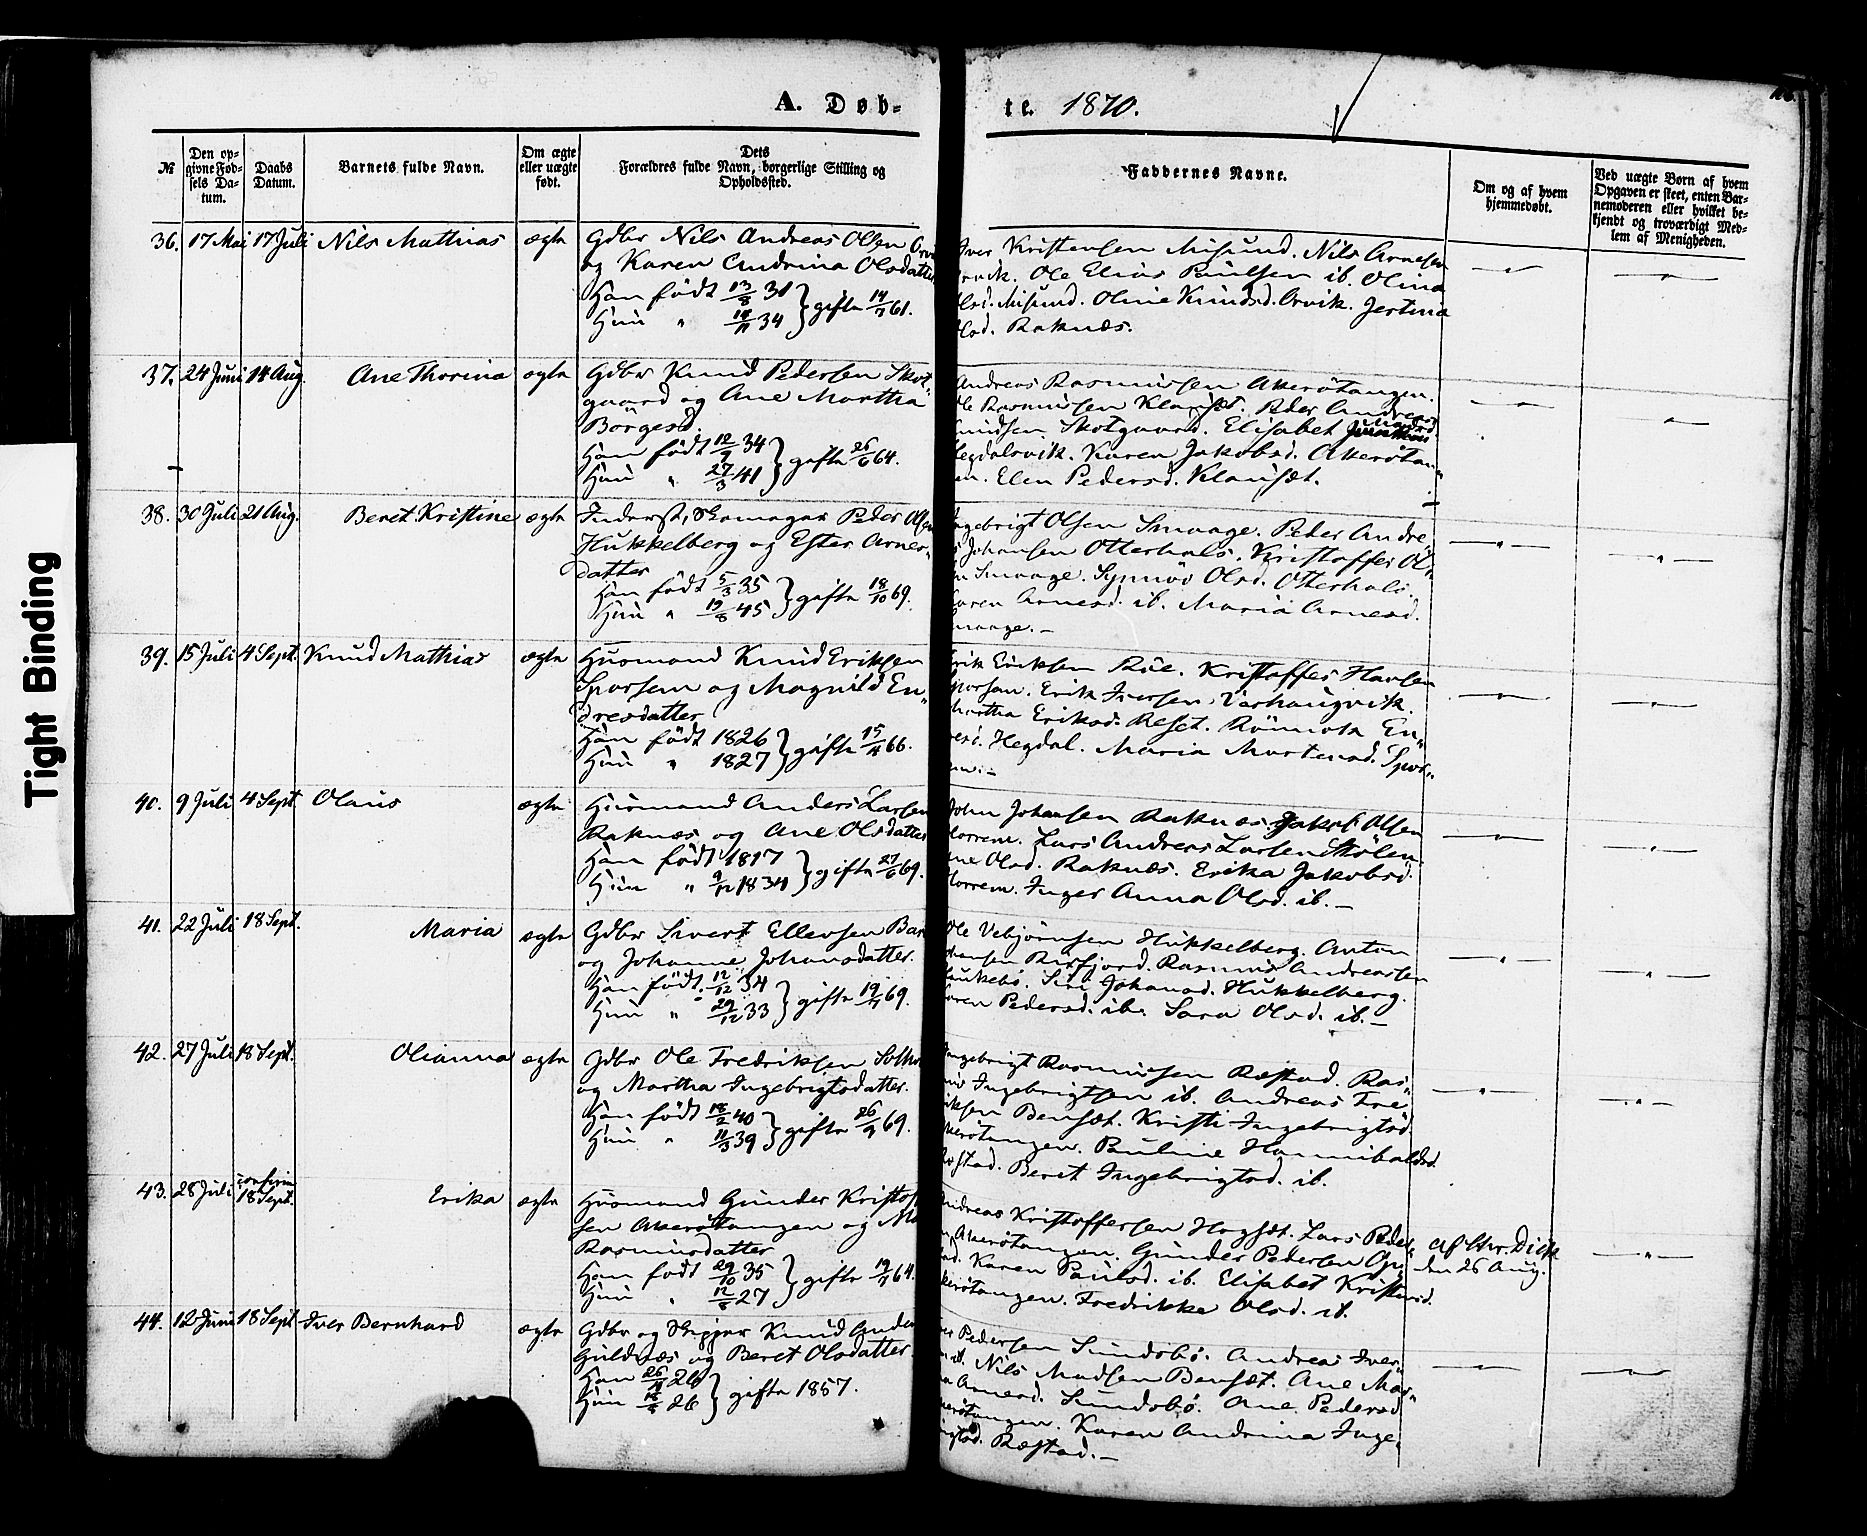 A. Døb-
te. 1870.
Tight Binding
№
Den op-
givne Fød-
sels Da-
tum.
Daabs
Datum.
Barnets fulde Navn.
Om ægte
eller uægte
født.
Dets
Forældres fulde Navn, borgerlige Stilling og
Opholdssted.
Faddernes Navne.
Om og af hvem
hjemmedøbt.
Ved uægte Børn af hvem
Opgaven er skeet, enten Bar-
nemoderen eller hvilket be-
kjendt og troværdigt Med-
lem af Menigheden.
36. 17 Mai 17 Juli Nils Mathias ægte
Gdbr Nils Andreas Olsen
og Karen Andrina Olsdatter
Han født 13/8 31 } gifte 14/7 61.
Hun " 34
Iver Kristensen Misund. Nils Arnesen
Orvik. Ole Elias Paulsen ib. Olina
Olsd. Misund. Oline Knudsd. Orvik. Jertina
Olsd. Raknæs.
37. 24 Juni 14 Aug. Ane Thorina ægte
Gdbr Knud Pedersen Skot-
gaard og Ane Martha
Börgesd.
Han født 12/9 34 } gifte 26/6 64.
Hun " 27/3 41
Andreas Rasmussen Akerötangen.
Ole Rasmussen Klauset. Peder Andreas
Knudsen Skotgaard. Elisabet
Hegdalsvik. Karen Jakobsd. Akerötan-
en. Elen Pedersd. Klauset.
38. 30 Juli 21 Aug. Beret Kristine ægte
Inderst, Skomager Peder Olsen
Hukkelberg og Ester Arnes-
datter
Han født 5/3 35 } gifte 18/10 69.
Hun " 19/8 45
Ingebrigt Olsen Smaage. Peder Andre-
s Johansen Otterhals. Kristoffer Ol-
n Smaage. Synnöv Olsd. Otterhals.
Karen Arnesd. ib. Maria Arnesd.
Smaage. –
39. 15 Juli 4 Sept. Knud Mathias ægte
Husmand Knud Eriksen
Sporsem og Magnild En-
dresdatter
Han født 1826 } gifte 15/4 66.
Hun " 1827
Erik Eriksen Rue. Kristoffer Hansen
Sporsem. Erik Iversen Varhaugvik.
Martha Eriksd. Reset. Römota En-
resd. Hegdal. Maria Mortensd. Spor-
em. –
40. 9 Juli 4 Sept. Olaus ægte
Husmand Anders Larsen
Raknæs og Ane Olsdatter
Han født 1817 } gifte 27/6 69.
Hun " 9/12 1834
John Johansen Raknæs. Jakob Olsen
Horrem. Lars Andreas Larsen Stölen.
Ane Olsd. Raknæs. Erika Jakobsd.
Horrem. Inger Anna Olsd. ib. –
41. 22 Juli 18 Sept. Maria ægte
Gdbr Sivert Ellevsen
og Johanne Johansdatter.
Han født 12/12 34 } gifte 19/7 69.
Hun " 29/12 33
Ole Vebjörnsen Hukkelberg. Anton
Johansen Risfjord. Rasmus Andreassen
Haukebö. Siri Johansd. Hukkelberg.
Karen Pedersd. ib. Sara Olsd. ib. –
42. 27 Juli 18 Sept. Olianna ægte
Gdbr Ole Fredriksen
og Martha Ingebrigtsdatter.
Han født 18/2 40 } gifte 26/9 69.
Hun " 11/3 39
Ingebrigt Rasmussen Ræstad. Ras-
mus Ingebrigtsen ib. Andreas Fre-
riksen Bensæt. Kristi Ingebrigtsd.
Akerötangen. Pauline Hannibalsd.
Ræstad. Beret Ingebrigtsd. ib.
43. 28 Juli confirm 18 Sept. Erika ægte
Husmand Gunder Kristof-
sen Akerötangen og
Rasmusdatter
Han født 29/10 35 } gifte 19/7 64.
Hun " 12/8 27
Andreas Kristoffersen Hogset. Lars Peder-
n Akerötangen. Gunder Pedersen
Karen Paulsd. ib. Elisabet Kristensd.
Akerötangen. Fredrikke Olsd. ib.
af Chr. Dick
den 26 Aug.
44. 12 Juni 18 Sept Iver Bernhard ægte
Gdbr og Skipper Knud
Guldnæs og Beret Olsdatter.
Han 26/11 26 } gifte 1857.
Hun 26
Pedersen Sundsbö. Andreas Iver-
Nils Madsen Bensæt. Ane Mar-
Arnesd. Sundsbö. Ane Pedersd
Akerötangen. Karen Andrina Inge-
Ræstad. –